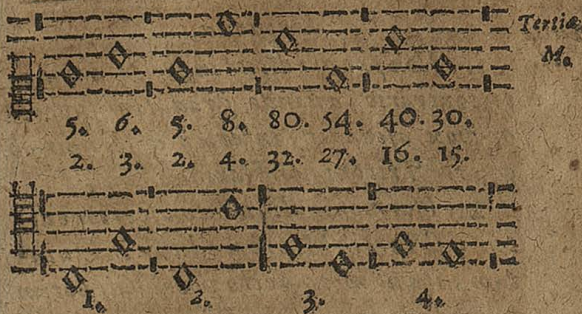 Tertiæ
M.
5. 6. 5. 8. 80. 54. 40. 30.
2. 3. 2. 4. 32. 27. 16. 15.
1. 2. 3. 4.